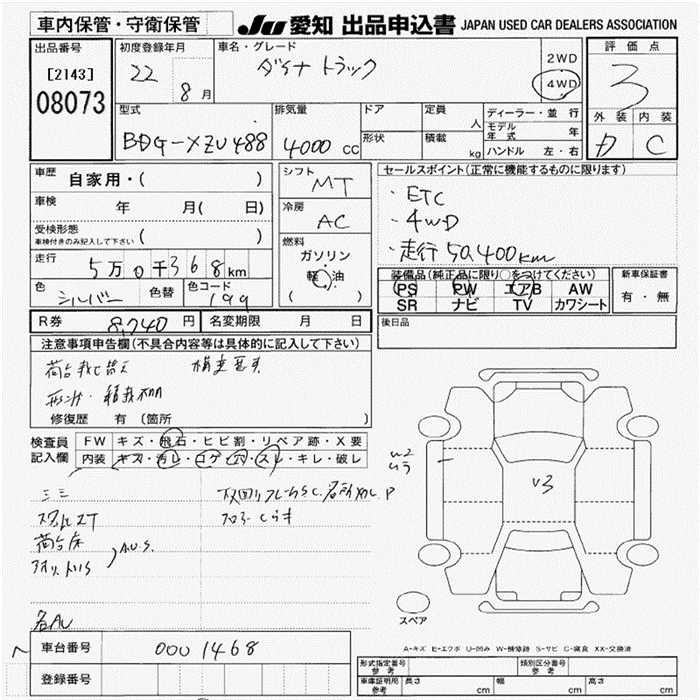 車内保管・守衛保管
JU 愛知 出品申込書 JAPAN USED CAR DEALERS ASSOCIATION
出品番号
[2143]
08073
初度登録年月
22
8 月
車名・グレード
ダイナ トラック
2WD
4WD
評価点
3
外装 内装
D C
型式
BDG-XZU488
排気量
4000 cc
ドア
形状
定員
人
積載
kg
ディーラー・並行
モデル年式 年
ハンドル 左・右
車歴
自家用・( )
車検
年 月( 日)
受検形態
車検付きのみ記入して下さい ( )
走行
5万0千368km
色
シルバー
色替
色コード
199
シフト
MT
冷房
AC
燃料
ガソリン
軽油
( )
セールスポイント(正常に機能するものに限ります)
・ETC
・4WD
・走行50,400km
装備品(純正品に限り○をつけてください)
PS PW エアB AW
SR ナビ TV カワシート
新車保証書
有・無
後日品
R券 8,740円
名変期限 月 日
注意事項申告欄(不具合内容等は具体的に記入して下さい)
修復歴 有 (箇所 )
検査員記入欄
FW キズ・飛石・ヒビ割・リペア跡・X要
内装 キズ・汚レ・コゲ・穴・スレ・キレ・破レ
荷台床
A.U.S.
各AU
W2
V3
スペア
A-キズ E-エクボ U-凹み W-補修跡 S-サビ C-腐食 XX-交換済
車台番号 0001468
登録番号
形式指定番号 参考
類別区分番号 参考
車庫証明用 参考
長さ cm 幅 cm 高さ cm